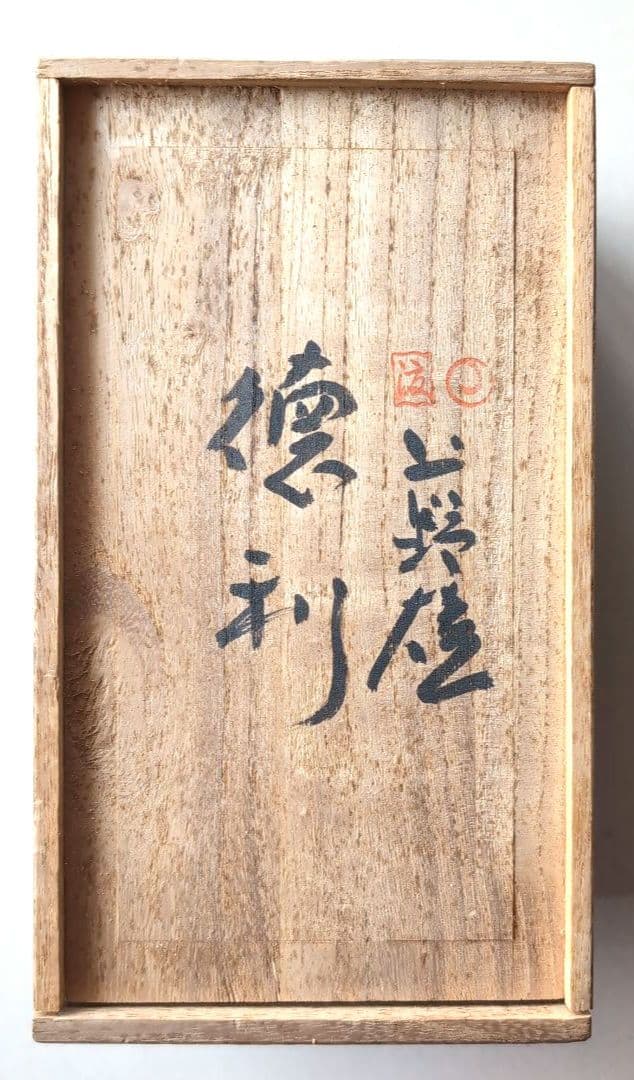 上野焼
徳利